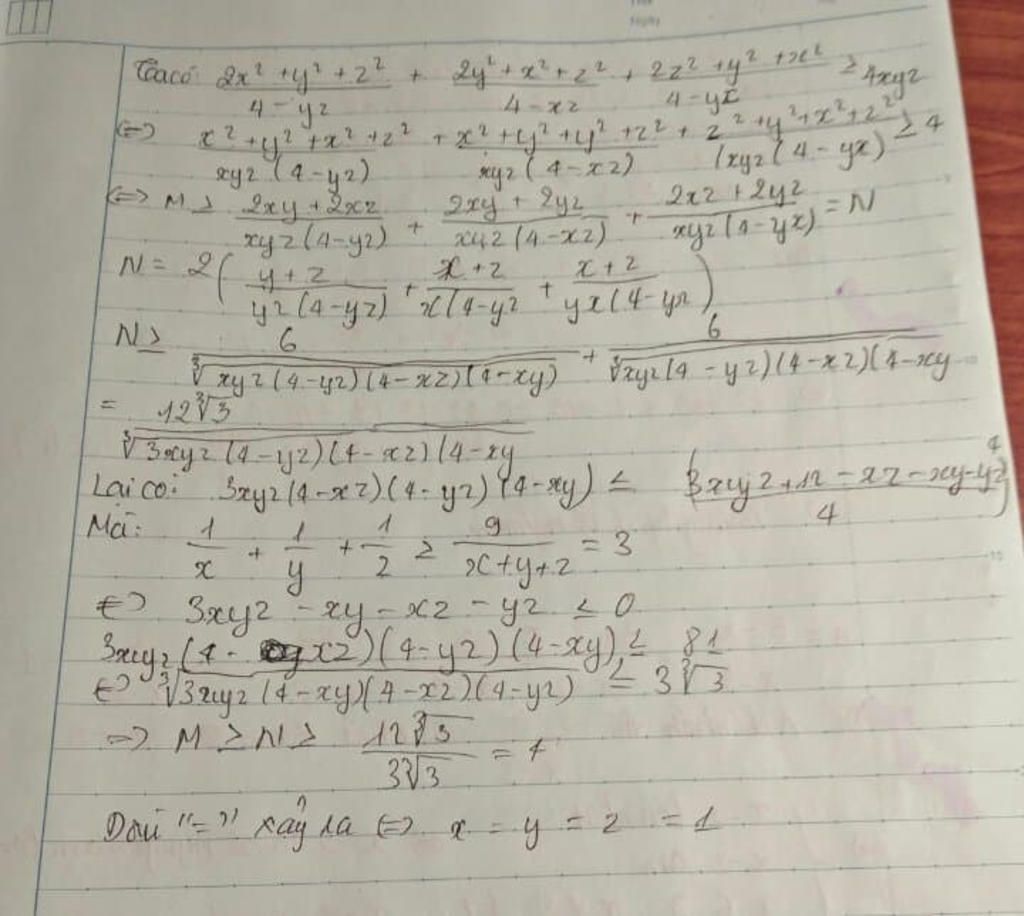 Ta có: (2x² + y² + z²)/(4 - yz) + (2y² + x² + z²)/(4 - xz) + (2z² + y² + x²)/(4 - yx) ≥ 4xyz
⇔ (x² + y² + x² + z²)/(xyz(4 - yz)) + (x² + y² + y² + z²)/(xyz(4 - xz)) + (z² + y² + x² + z²)/(xyz(4 - yx)) ≥ 4
⇔ M ≥ (2xy + 2xz)/(xyz(4 - yz)) + (2xy + 2yz)/(xyz(4 - xz)) + (2xz + 2yz)/(xyz(4 - yx)) = N
N = 2((y + z)/(yz(4 - yz)) + (x + z)/(x(4 - yz + (x + z)/(yx(4 - yz)
N ≥ 6/∛(xyz(4 - yz)(4 - xz)(4 - xy)) + 6/∛(xyz(4 - yz)(4 - xz)(4 - xy
= 12∛3/∛(3xyz(4 - yz)(4 - xz)(4 - xy
Lại có: 3xyz(4 - xz)(4 - yz)(4 - xy) ≤ ((3xyz + 12 - xz - xy - yz)/4)⁴
Mà: 1/x + 1/y + 1/z ≥ 9/(x + y + z) = 3
⇔ 3xyz - xy - xz - yz ≤ 0
3xyz(4 - xz)(4 - yz)(4 - xy) ≤ 81
⇔ ∛(3xyz(4 - xy)(4 - xz)(4 - yz)) ≤ 3∛3
⇒ M ≥ N ≥ 12∛3/3∛3 = 4
Dấu "=" xảy ra ⇔ x = y = z = 1